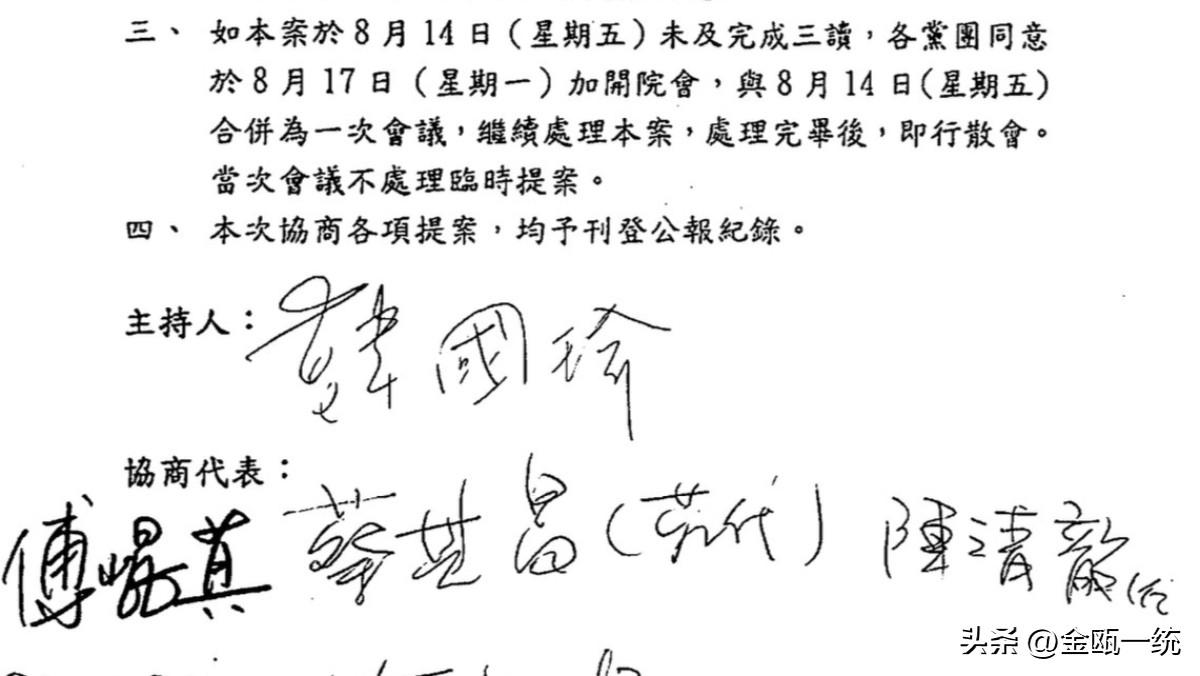 三、 如本案於8月14日（星期五）未及完成三讀，各黨團同意
於8月17日（星期一）加開院會，與8月14日(星期五)
合併為一次會議，繼續處理本案，處理完畢後，即行散會。
當次會議不處理臨時提案。
四、 本次協商各項提案，均予刊登公報紀錄。
主持人： 韓國瑜
協商代表：
傅崐萁 蔡其昌（代） 陳清龍
头条 @金瓯一统